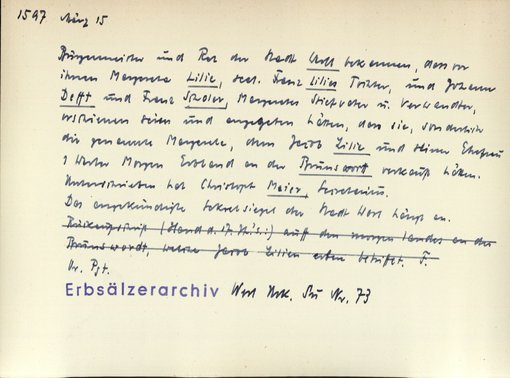 1597 März 15
Bürgermeister und Rat der Stadt Werl bekennen, dass vor
ihnen Margareta Lilie, seel. Franz Lilien Tochter, und Johann
Defft und Franz Scholer, Margareten Stiefvater u. Verwandter,
erschienen seien und angegeben hätten, dass sie, sonderlich
die genannte Margareta, dem Jacob Lilie und seiner Ehefrau
Morgen Erbland an der Brunswordt verkauft hätten.
Unterschrieben hat Christoph Maier, Secretarius.
Das angekündigte Sekretsiegel der Stadt Werl hängt an.
Rückenschrift (Hand d. 17. Jh.:) auff den morgen landes an der
Brunswordt, welche Jacob Lilien erben betrifft. F.
Or. Pgt.
Erbsälzerarchiv Werl Urk. Nr. 73